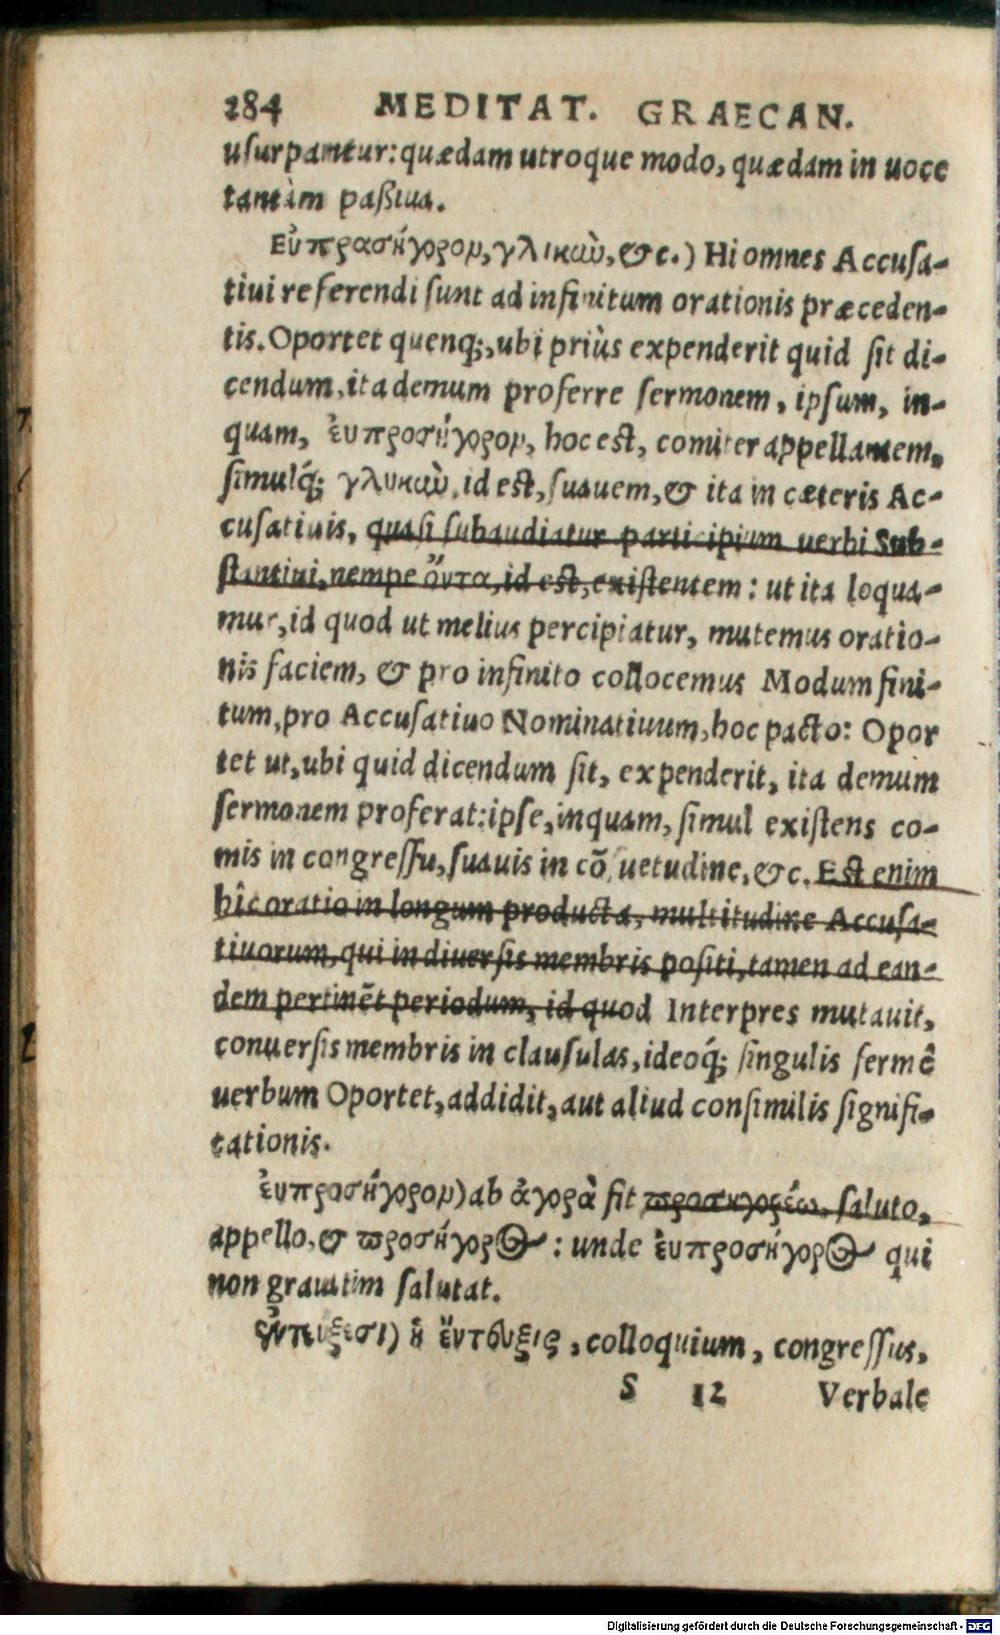 284 MEDITAT. GRAECAN.
usurpantur: quædam utroque modo, quædam in uoce
tantùm paßiua.
Εὐπρασήγορον, γλικαὺ, &c.) Hi omnes Accusa-
tiui referendi sunt ad infinitum orationis præceden-
tis. Oportet quenq;, ubi priùs expenderit quid sit di-
cendum, ita demum proferre sermonem, ipsum, in-
quam, ἐυπροσήγορον, hoc est, comiter appellantem,
simulq́; γλυκαὺ, id est, suauem, & ita in cæteris Ac-
cusatiuis, quasi subaudiatur participium uerbi Sub-
stantiui, nempe ὄντα, id est, existentem: ut ita loqua-
mur, id quod ut melius percipiatur, mutemus oratio-
nis faciem, & pro infinito collocemus Modum fini-
tum, pro Accusatiuo Nominatiuum, hoc pacto: Opor
tet ut, ubi quid dicendum sit, expenderit, ita demum
sermonem proferat: ipse, inquam, simul existens co-
mis in congressu, suauis in cōuetudine, &c. Est enim
hîc oratio in longum producta, multitudine Accusa-
tiuorum, qui in diuersis membris positi, tamen ad ean-
dem pertinēt periodum, id quod Interpres mutauit,
conuersis membris in clausulas, ideoq́; singulis fermè
uerbum Oportet, addidit, aut aliud consimilis signifi-
cationis.
ἐυπροσήγορον) ab ἀγορὰ fit προσηγορέω, saluto,
appello, & προσήγορος: unde ἐυπροσήγορος qui
non grauatim salutat.
ἐντευξεσι) ἡ ἔντευξις, colloquium, congressus,
S 12 Verbale
Digitalisierung gefördert durch die Deutsche Forschungsgemeinschaft - DFG